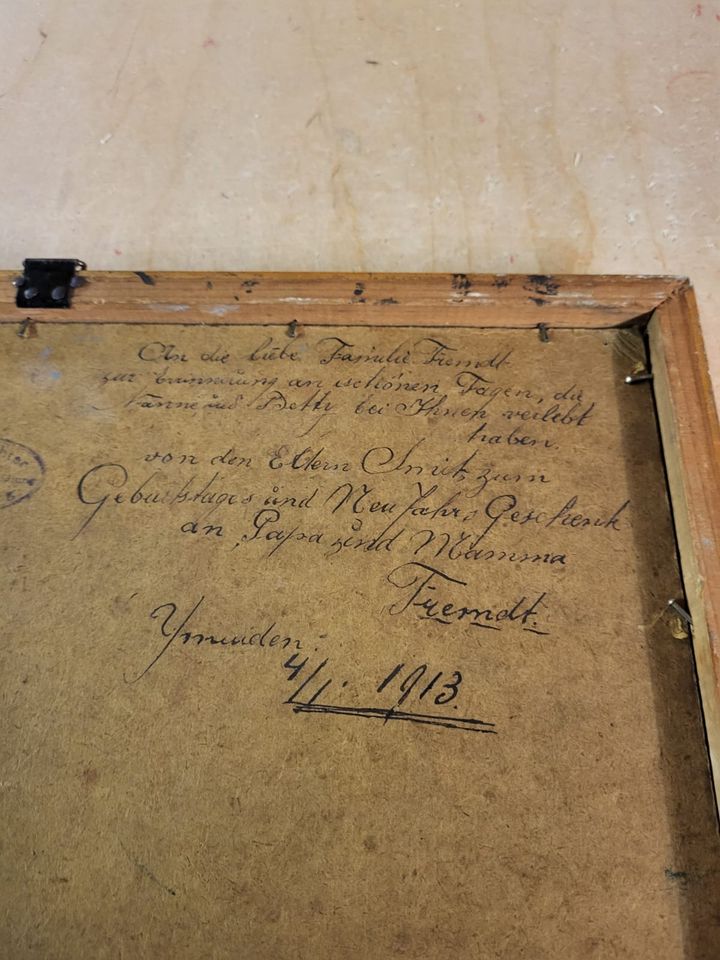 An die liebe Familie Fremdt
zur Erinnerung an schönen Tagen, die
und Betty bei Ihnen verlebt
haben.
von den Eltern Smit zum
Geburtstags und Neu Jahrs Geschenk
an Papa und Mamma
Fremdt.
Ymuiden.
4/1. 1913.